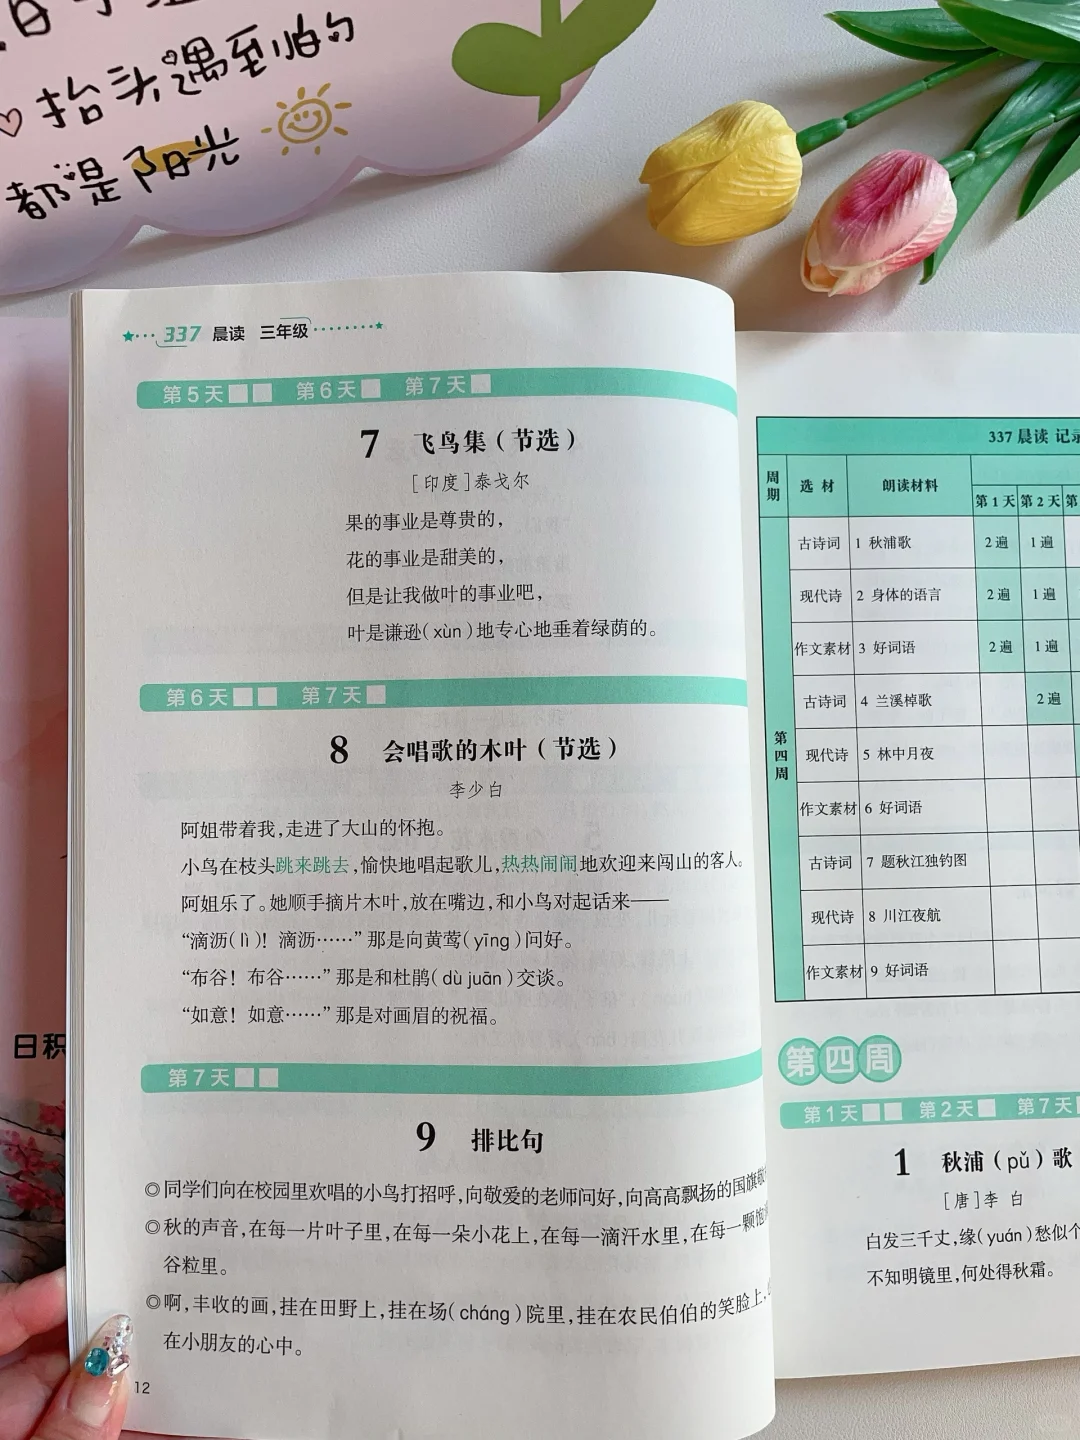 抬头遇到的
都是阳光
337 晨读 三年级
第5天 第6天 第7天
7 飞鸟集(节选)
[印度]泰戈尔
果的事业是尊贵的,
花的事业是甜美的,
但是让我做叶的事业吧,
叶是谦逊(xùn)地专心地垂着绿荫的。
第6天 第7天
8 会唱歌的木叶(节选)
李少白
阿姐带着我,走进了大山的怀抱。
小鸟在枝头跳来跳去,愉快地唱起歌儿,热热闹闹地欢迎来闯山的客人。
阿姐乐了。她顺手摘片木叶,放在嘴边,和小鸟对起话来——
“滴沥(lì)! 滴沥……”那是向黄莺(yīng)问好。
“布谷! 布谷……”那是和杜鹃(dù juān)交谈。
“如意! 如意……”那是对画眉的祝福。
第7天
9 排比句
◎同学们向在校园里欢唱的小鸟打招呼,向敬爱的老师问好,向高高飘扬的国旗敬
◎秋的声音,在每一片叶子里,在每一朵小花上,在每一滴汗水里,在每一颗饱
谷粒里。
◎啊,丰收的画,挂在田野上,挂在场(cháng)院里,挂在农民伯伯的笑脸上,
在小朋友的心中。
12
日积
337 晨读 记录
周期 选材 朗读材料 第1天 第2天 第
第四周
古诗词 1 秋浦歌 2遍 1遍
现代诗 2 身体的语言 2遍 1遍
作文素材 3 好词语 2遍 1遍
古诗词 4 兰溪棹歌 2遍
现代诗 5 林中月夜
作文素材 6 好词语
古诗词 7 题秋江独钓图
现代诗 8 川江夜航
作文素材 9 好词语
第四周
第1天 第2天 第7天
1 秋浦(pǔ)歌
[唐]李白
白发三千丈,缘(yuán)愁似个
不知明镜里,何处得秋霜。